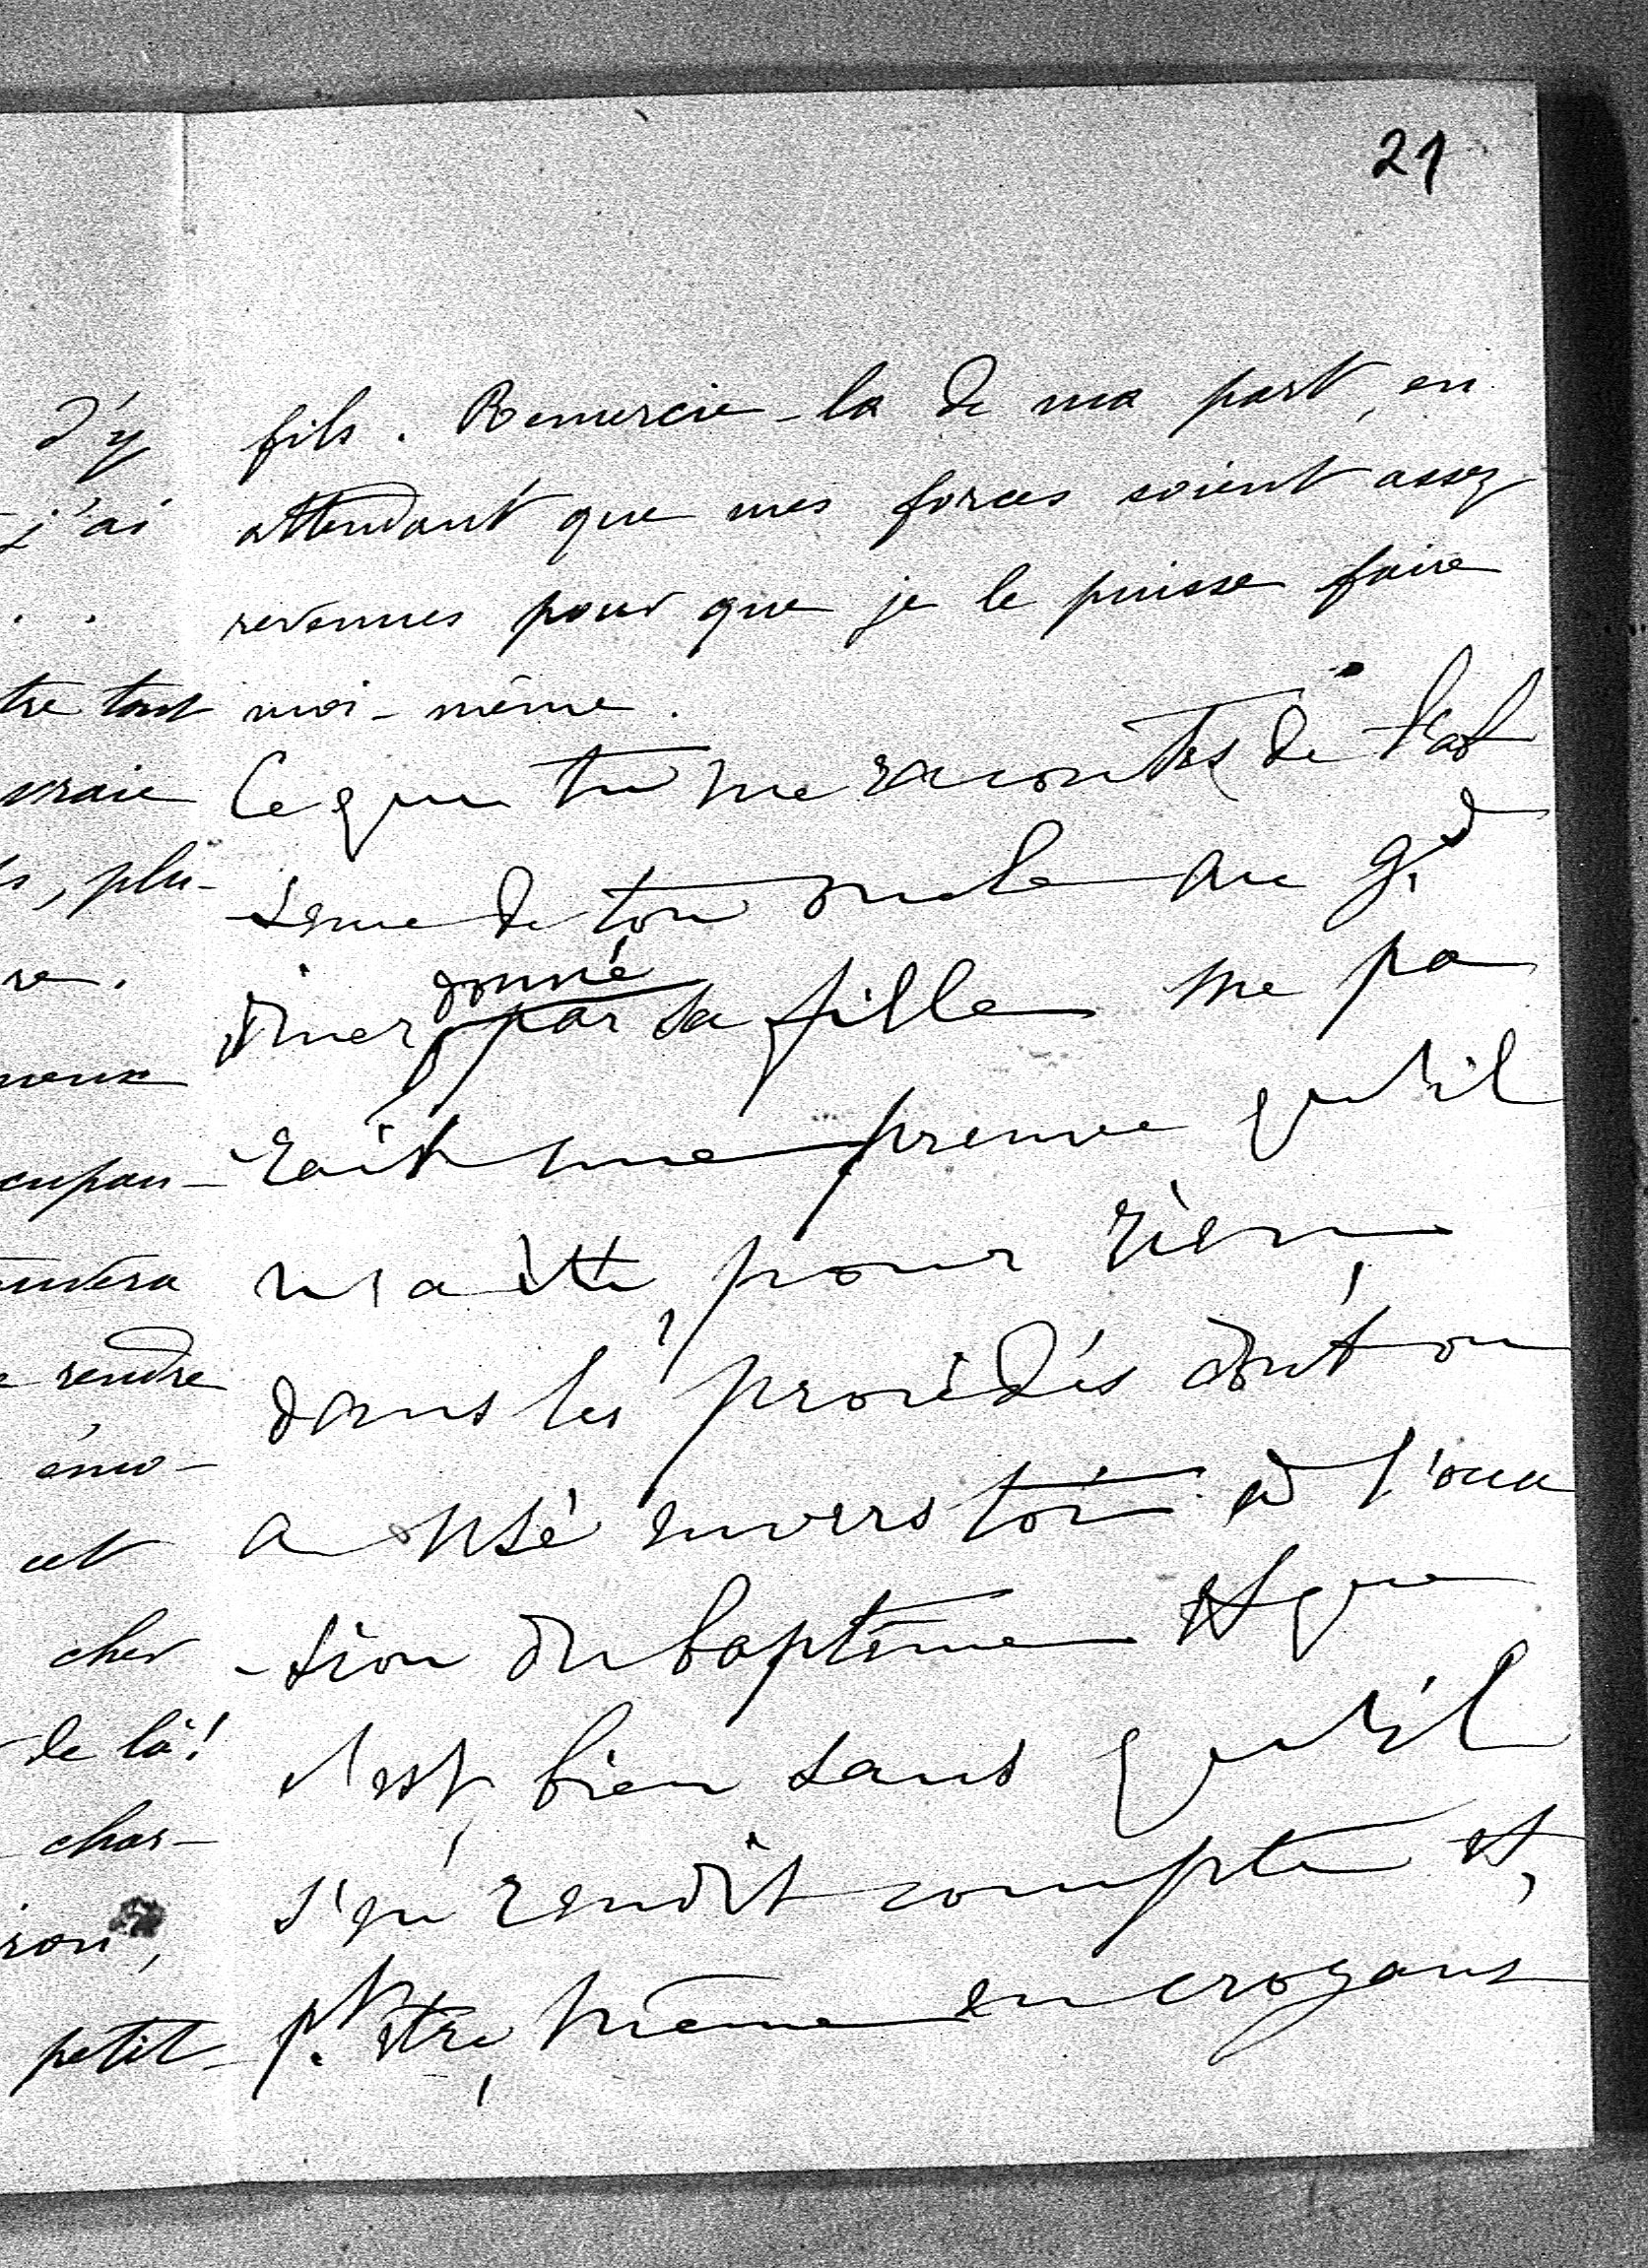 21
d'y
j'ai
. .
tre tout
vraie
s, plu-
re.
neux
cupan-
uvera
rendre
émo-
cet
cher
de là!
char-
ron,
petit-
fils. Remercie-la de ma part, en
attendant que mes forces soient assez
revenues pour que je le puisse faire
moi-même.
Ce que tu me racontes de l'ab
sence de ton oncle au g.d
dîner donné par sa fille me pa
raît une preuve qu'il
n'a été, pour rien,
dans les procédés dont on
a usé envers toi à l'occa
-sion du baptême et que
c'est, bien sans qu'il
s'en rendît compte et,
p.t être, même en croyant